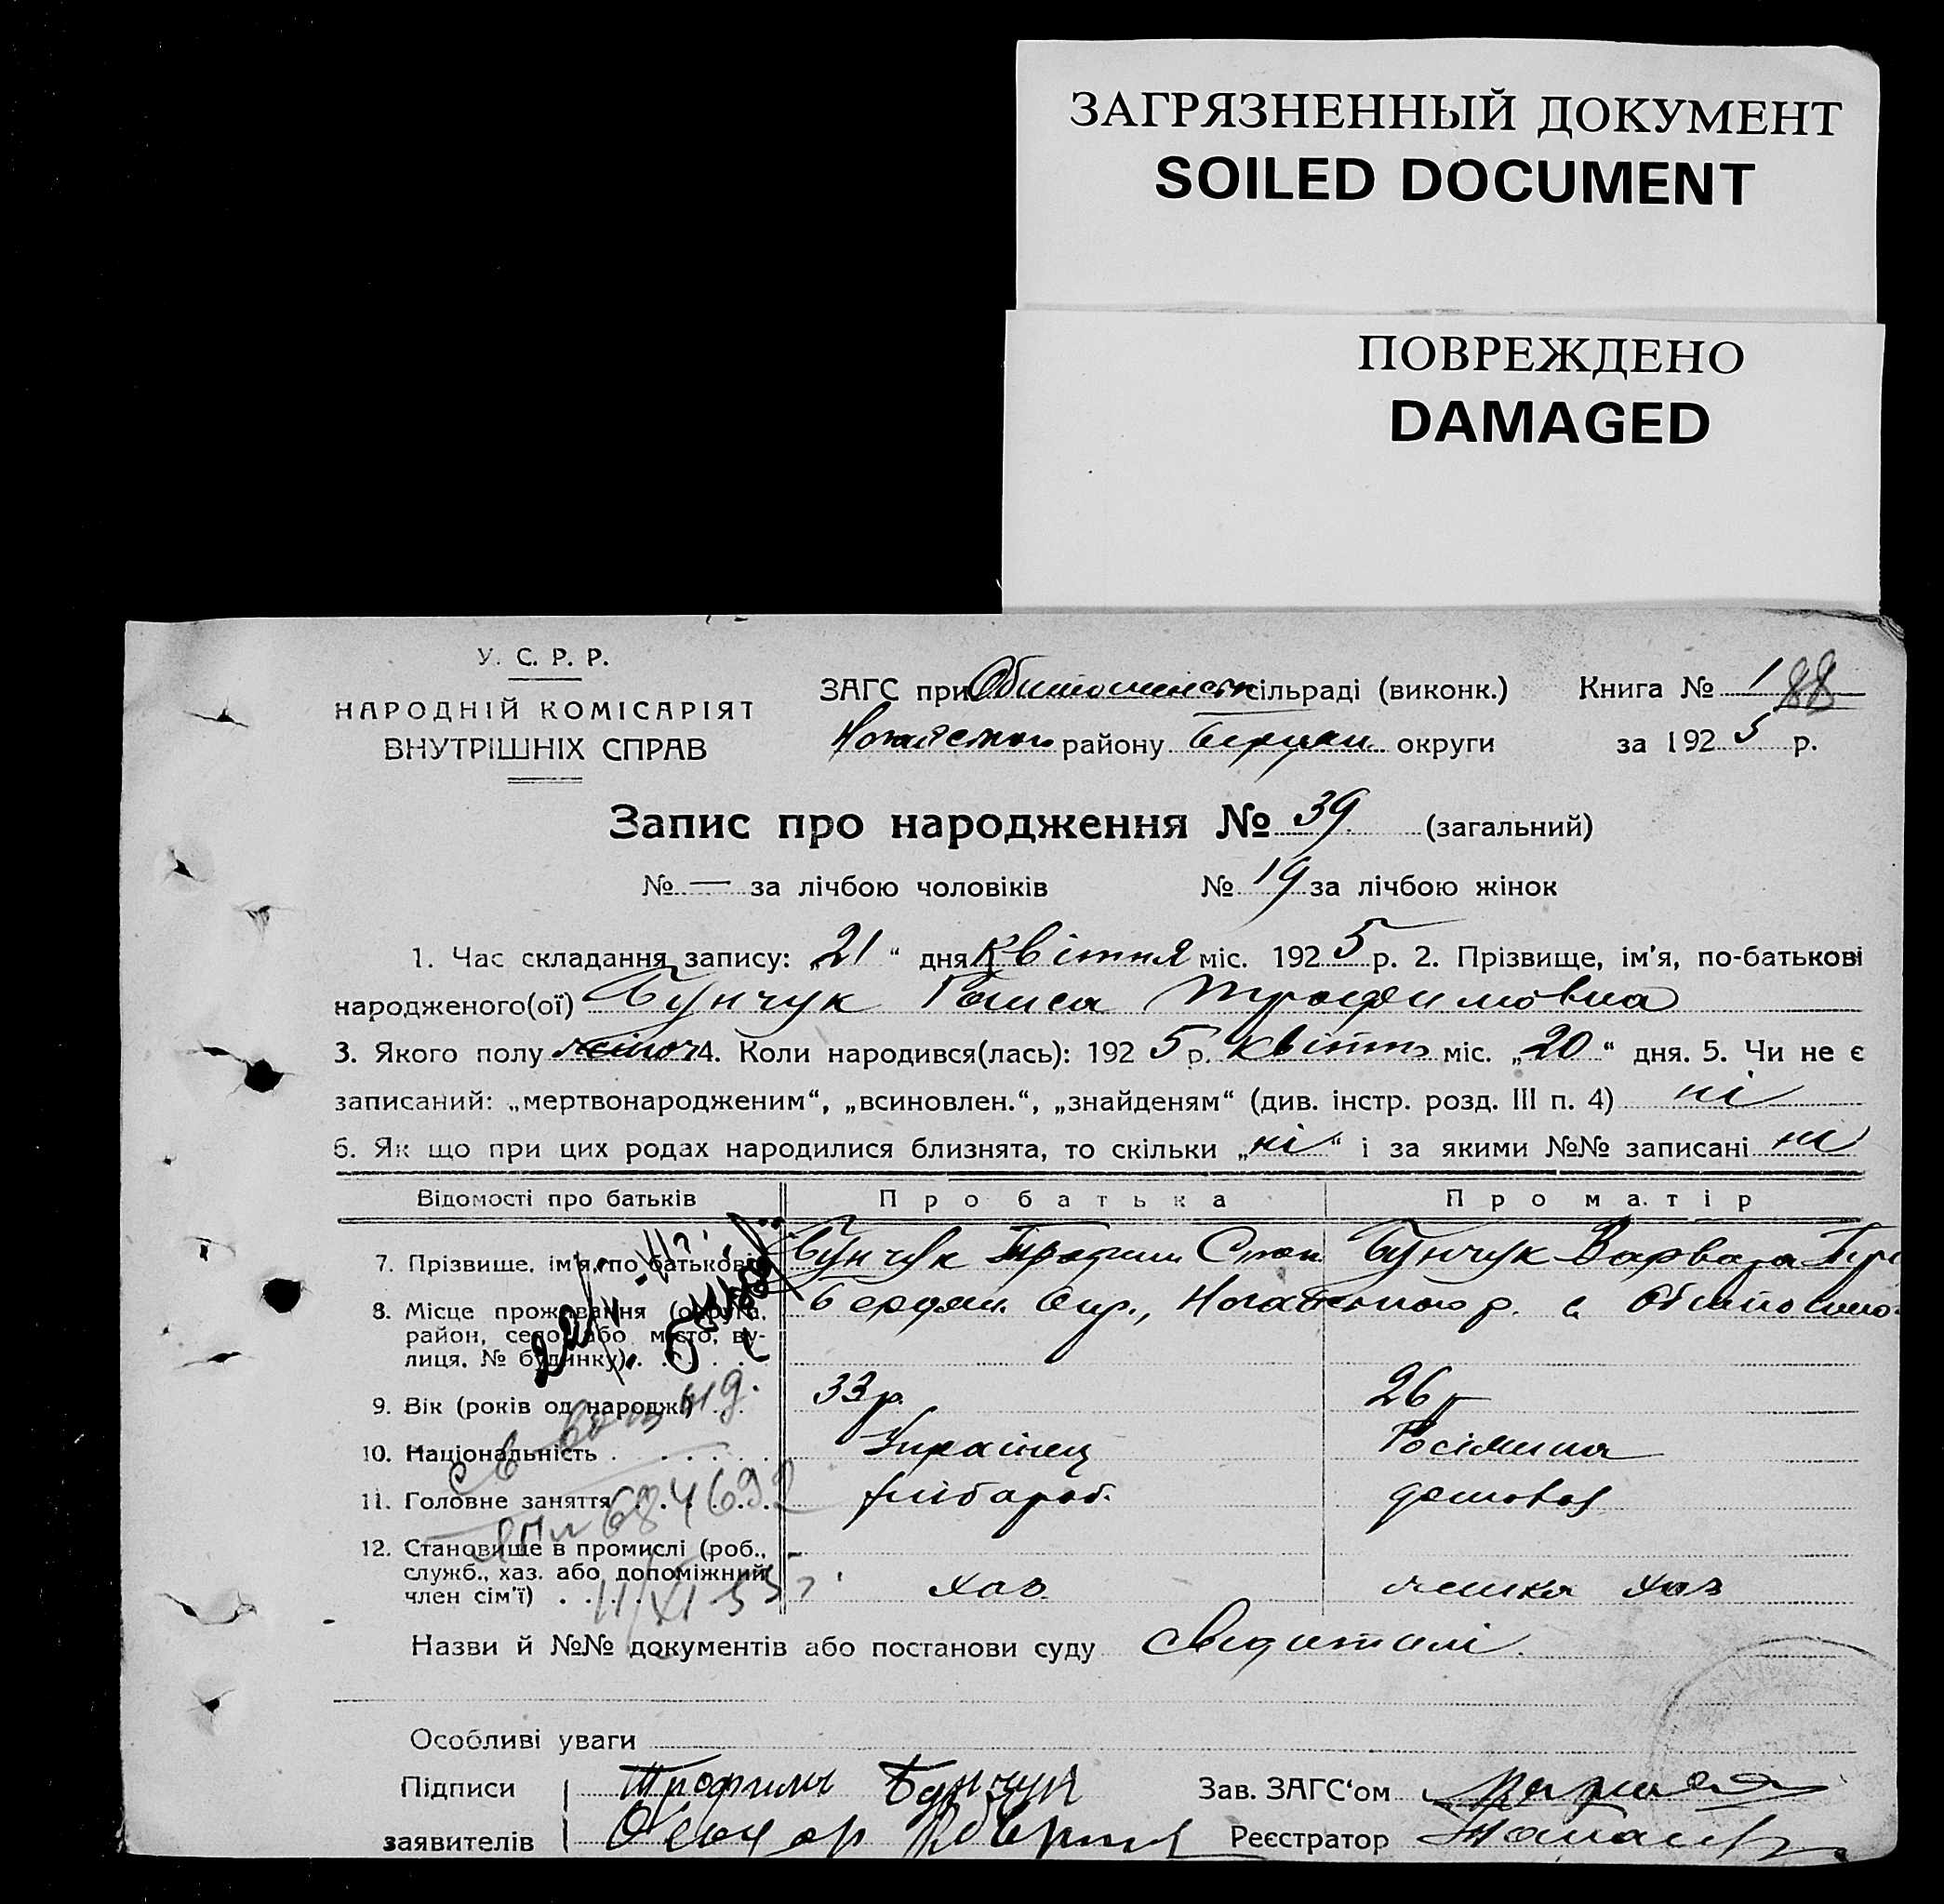 ЗАГРЯЗНЕННЫЙ ДОКУМЕНТ
SOILED DOCUMENT
ПОВРЕЖДЕНО
DAMAGED
У. С. Р. Р.
НАРОДНІЙ КОМІСАРІЯТ
ВНУТРІШНІХ СПРАВ
ЗАГС при сільраді (виконк.) Книга № 1 88
району округи за 1925 р.
Запис про народження № 39 (загальний)
№ — за лічбою чоловіків № 19 за лічбою жінок
1. Час складання запису: „21“ дня Квітня міс. 1925 р. 2. Прізвище, ім'я, по-батькові
народженого(ої) Бунчук Раиса Трофимовна
3. Якого полу 4. Коли народився(лась): 1925 р. міс. „20“ дня. 5. Чи не є
записаний: „мертвонародженим“, „всиновлен.“, „знайденям“ (див. інстр. розд. III п. 4) ні
6. Як що при цих родах народилися близнята, то скільки „ні“ і за якими №№ записані ні
Відомості про батьків Про батька Про матір
7. Прізвище, ім'я, по батькові Бунчук Трофим Степ Бунчук Варвара
8. Місце проживання (округа, район, село або місто, вулиця, № будинку)
9. Вік (років од народж.) 33 р. 26 р
10. Національність Українец Росіянка
11. Головне заняття домовод
12. Становище в промислі (роб., служб., хаз. або допоміжний член сім'ї) хаз. хаз
684692
11/XI 55 г
Назви й №№ документів або постанови суду свидетелі
Особливі уваги
Підписи Трофим Бунчук Зав. ЗАГС'ом
заявителів Реєстратор